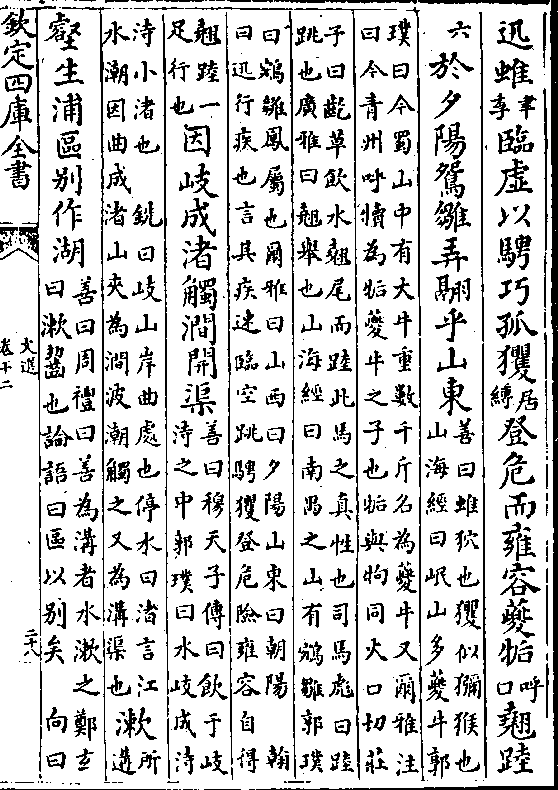 迅蜼聿季臨虛以騁巧孤玃居縛登危而雍容夔㸸呼口翹踛
六於夕陽鴛雛弄翮乎山東善曰蜼狖也玃似獼猴也
山海經曰岷山多夔牛郭
璞曰今蜀山中有大牛重數千斤名為夔牛又爾雅注
曰今青州呼犢為㸸夔牛之子也㸸與同火口切莊
子曰齕草飲水翹尾而踛此馬之真性也司馬彪曰踛
跳也廣雅曰翹舉也山海經曰南禺之山有鵷雛郭璞
曰鵷雛鳳屬也爾雅曰山西曰夕陽山東曰朝陽 翰
曰迅行疾也言其疾迷臨空跳騁玃登危險雍容自得
翹踛一
足行也因岐成渚觸澗開渠善曰穆天子傳曰飲于岐
洔之中郭璞曰水岐成洔
洔小渚也 銑曰岐山岸曲處也停水曰渚言江
水潮因曲成渚山夾為澗波潮觸之又為溝渠也漱所遘
壑生浦區別作湖善曰周禮曰善為溝者水漱之鄭玄
曰漱齧也論語曰區以別矣 向曰
欽定四庫全書
文選
卷十二
二十八